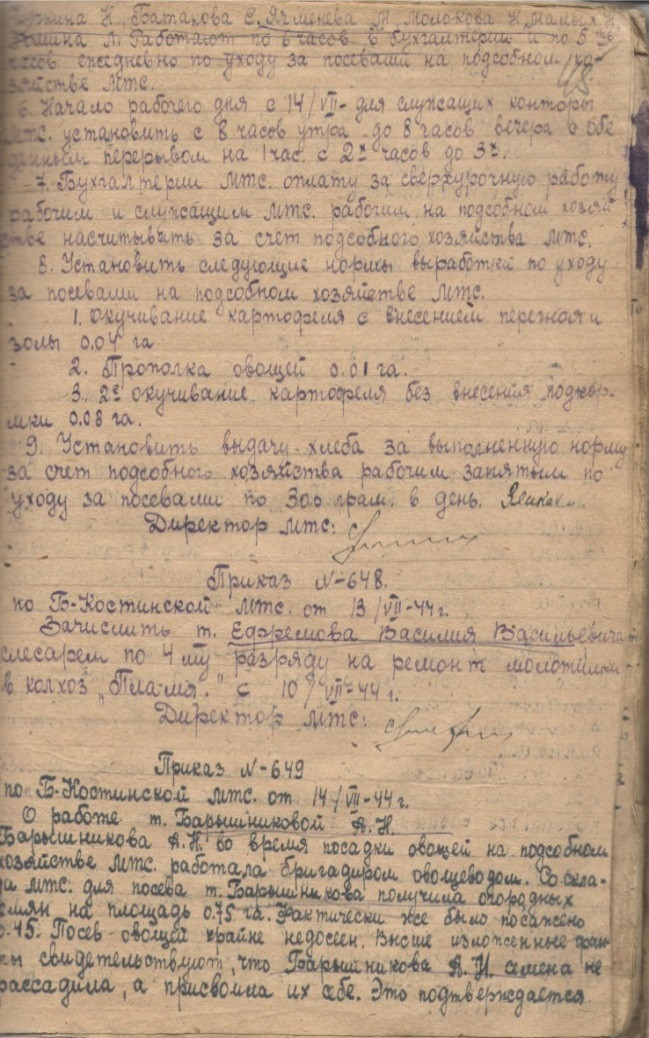 Н., Батакова Е, Ячменева М, Молокова Н, Малых Н,
Л. Работают по 6 часов в бухгалтерии и по 5
часов ежедневно по уходу за посевами на подсобном хо-
зяйстве МТС.
6. Начало рабочего дня с 14/VII- для служащих конторы
МТС. установить с 8 часов утра до 8 часов вечера с обе
денным перерывом на 1 час. с 2х часов до 3х.
7. Бухгалтерии МТС. оплату за сверхурочную работу
рабочим и служащим МТС. рабочим на подсобном хозяй
стве насчитывать за счет подсобного хозяйства МТС.
8. Установить следующие нормы выработкей по уходу
за посевами на подсобном хозяйстве МТС.
1. Окучивание картофеля с внесением перегноя и
золы 0.04 га
2. Прополка овощей 0.01 га.
3. 2е окучивание картофеля без внесения подкор-
мки 0.08 га.
9. Установить выдачу хлеба за выполненную норму
за счет подсобного хозяйства рабочим занятым по
уходу за посевами по 300 грам. в день.
Директор МТС:
Приказ N-648.
по Б-Костинской МТС. от 13/VII-44 г.
Зачислить т. Ефремова Василия Васильевича
слесарем по 4му разряду на ремонт молотилки
в колхоз „Пламя." с 10/VII-44 г.
Директор МТС:
Приказ N-649
по Б-Костинской МТС. от 14/VII-44 г.
О работе т. Барышниковой А.Н.
Барышникова А.Н. во время посадки овощей на подсобном
хозяйстве МТС. работала бригадиром овощеводом. Со скла-
да МТС. для посева т. Барышникова получила огородных
семян на площадь 0.75 га. Фактически же было посажено
0.45. Посев овощей крайне недосеен. Высше изложенные фак-
ты свидетельствуют, что Барышникова А.Н. семена не
рассадила, а присвоила их себе. Это подтверждается